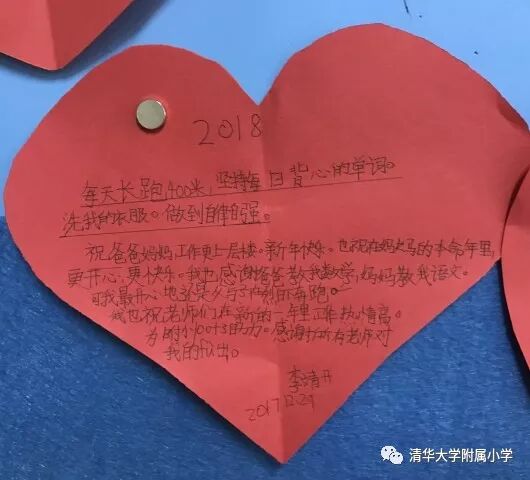 2018
每天长跑400米,坚持每日背心的单词。
洗我的衣服。做到自律自强。
祝爸爸妈妈工作更上层楼。新年快乐。也祝在妈大马的本命年里,
更开心,更快乐。我也感谢爸爸教我数学,妈妈教我语文。
可我最开心地还是
奔跑。
我也祝老师们在新的一年里工作热情高。
为附小
努力。感谢所有老师对
我的付出。
李靖开
2017.12.29
清华大学附属小学